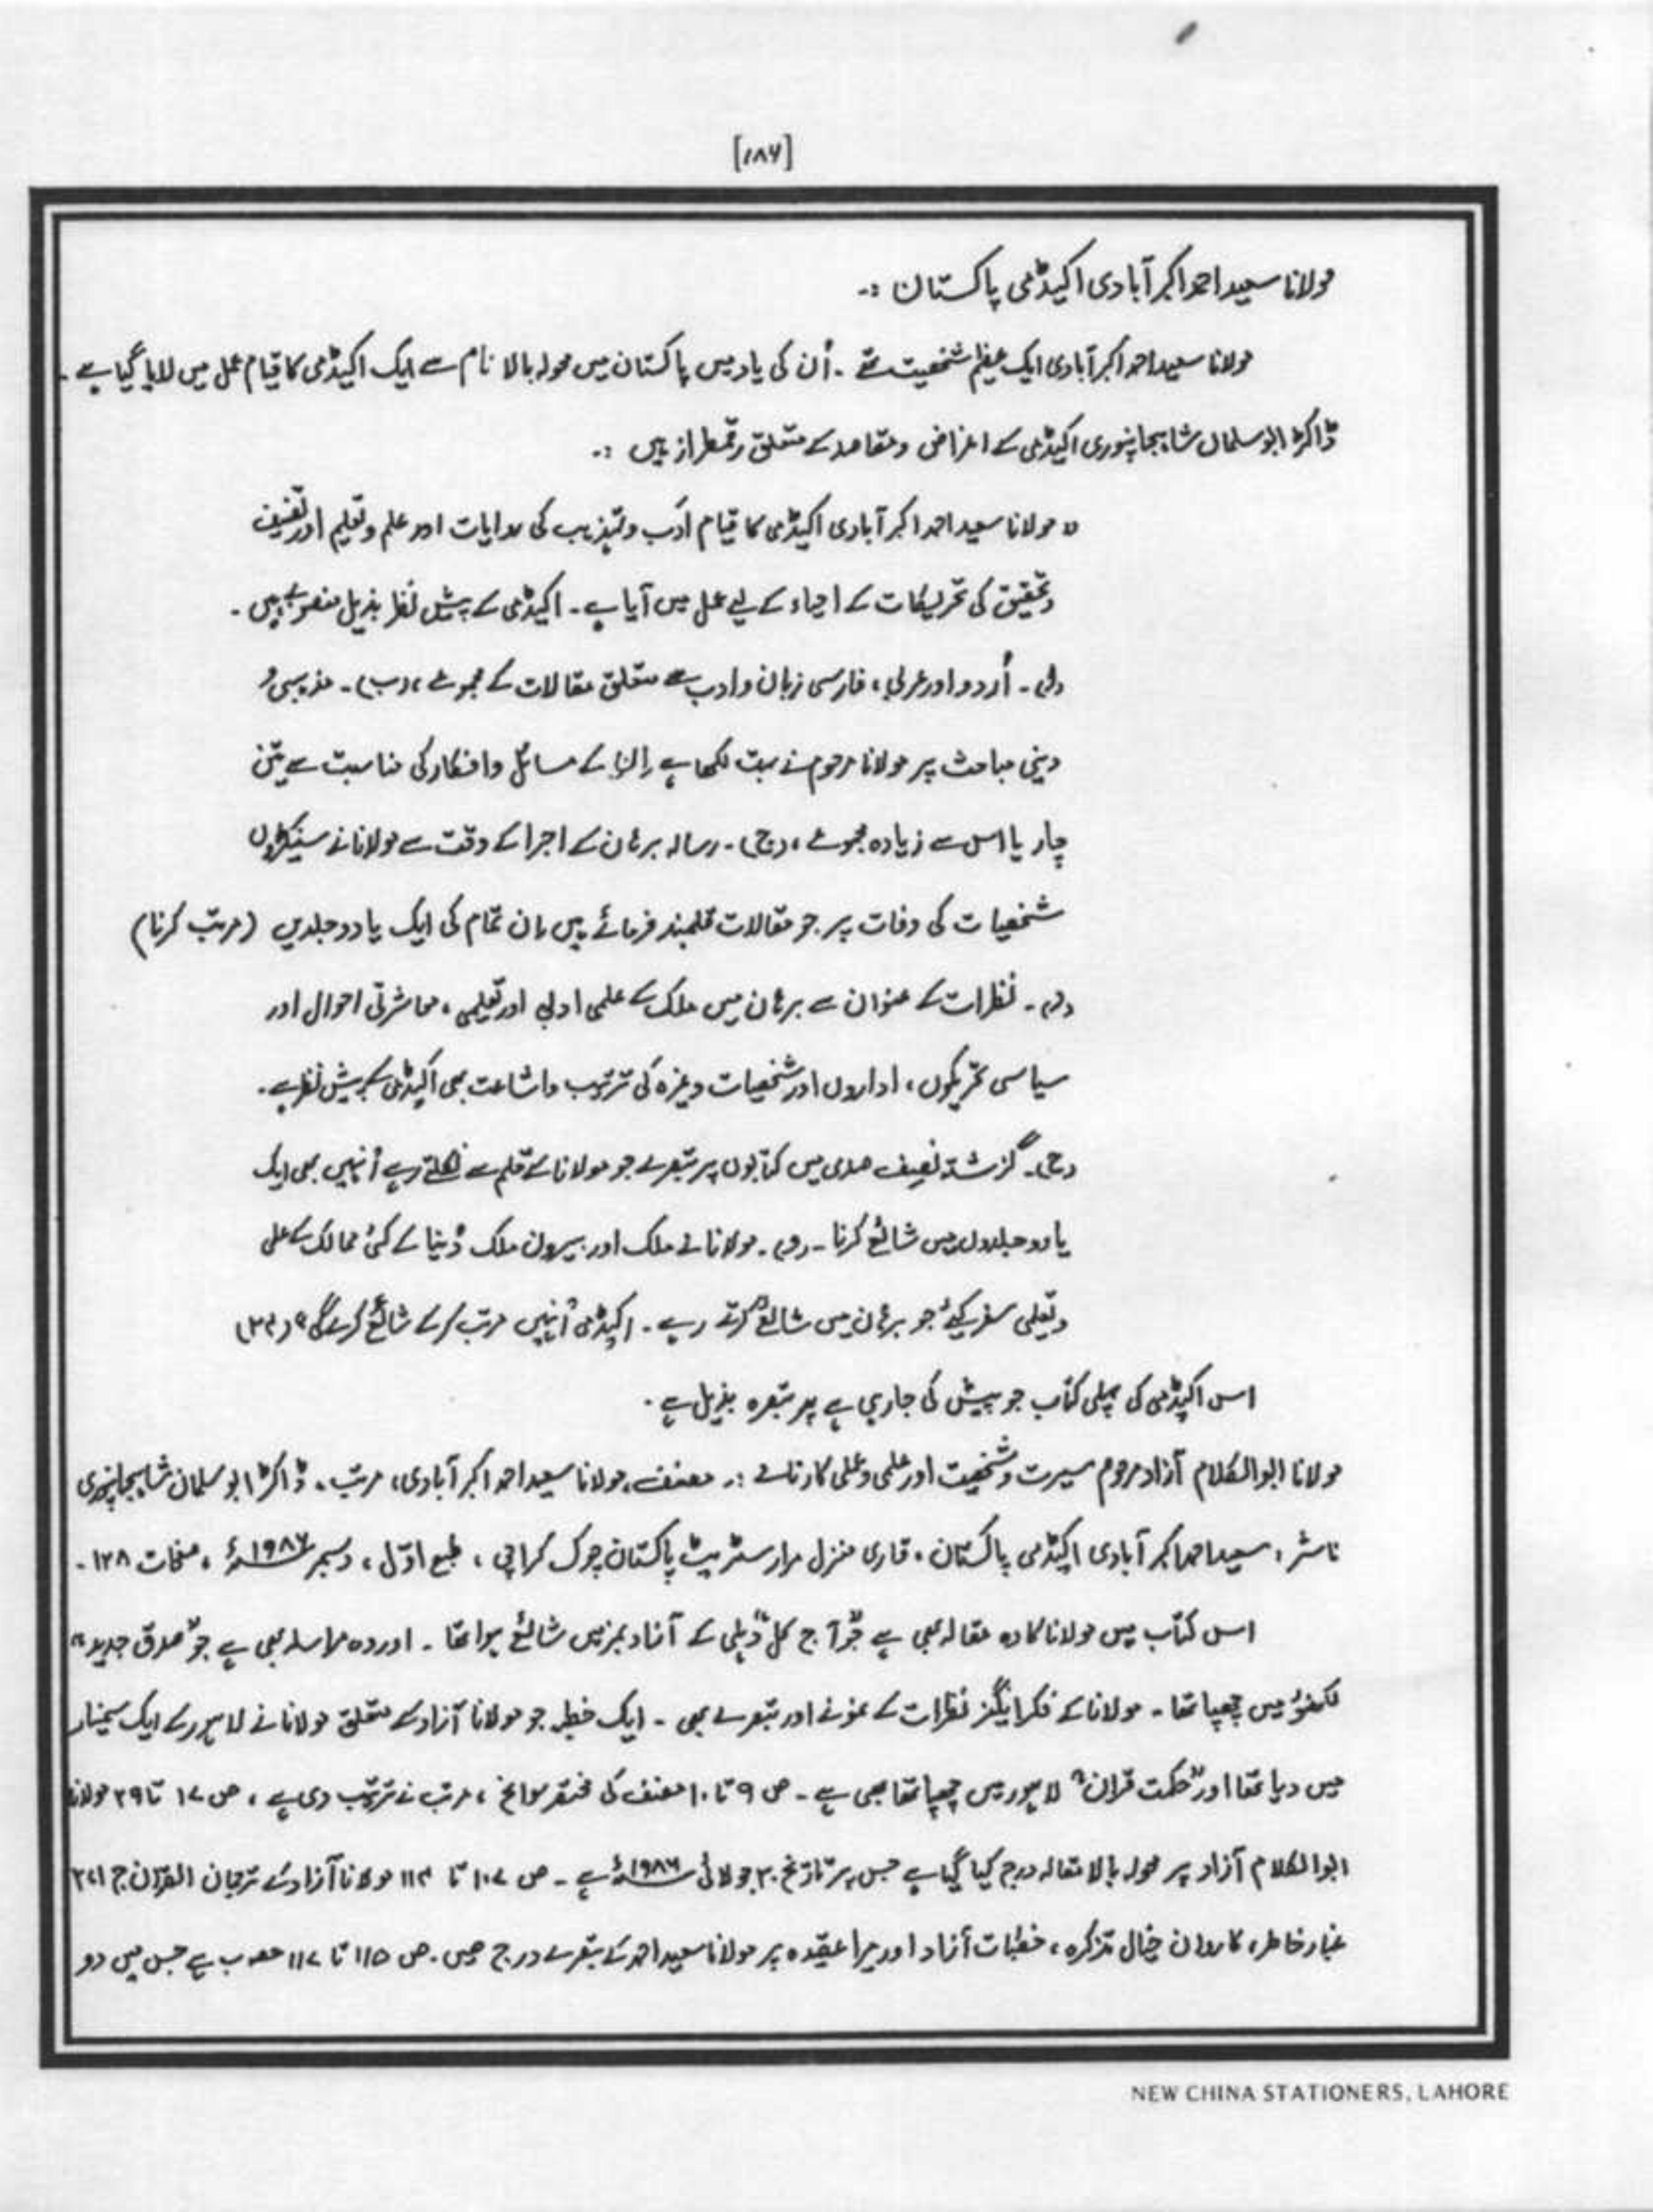 [۱۸۶]
مولانا سعید احمد اکبر آبادی اکیڈمی پاکستان :۔
مولانا سعید احمد اکبر آبادی ایک عظیم شخصیت تھے ۔ اُن کی یاد میں پاکستان میں محولہ بالا نام سے ایک اکیڈمی کا قیام عمل میں لایا گیا ہے ۔
ڈاکٹر ابو سلمان شاہجہانپوری اکیڈمی کے اغراض و مقاصد کے متعلق رقمطراز ہیں :۔
" مولانا سعید احمد اکبر آبادی اکیڈمی کا قیام ادب و تہذیب کی روایات اور علم و تعلیم اور تصنیف
و تحقیق کی تحریکات کے احیاء کے لیے عمل میں آیا ہے ۔ اکیڈمی کے پیش نظر بذیل منصوبے ہیں ۔
(ا) ۔ اُردو اور عربی ، فارسی زبان و ادب سے متعلق مقالات کے مجموعے ، (ب) ۔ مذہبی و
دینی مباحث پر مولانا مرحوم نے بہت لکھا ہے ان کے مسائل و افکار کی مناسبت سے تین
چار یا اس سے زیادہ مجموعے ، (ج) ۔ رسالہ برہان کے اجرا کے وقت سے مولانا نے سینکڑوں
شخصیات کی وفات پر جو مقالات قلمبند فرمائے ہیں ان تمام کی ایک یا دو جلدیں (مرتب کرنا)
(د) ۔ نظرات کے عنوان سے برہان میں ملک کے علمی ادبی اور تعلیمی ، معاشرتی احوال اور
سیاسی تحریکوں ، اداروں اور شخصیات وغیرہ کی ترتیب و اشاعت بھی اکیڈمی کے پیش نظر ہے ۔
(ح) ۔ گزشتہ نصف صدی میں کتابوں پر تبصرے جو مولانا کے قلم سے نکلتے رہے اُنہیں بھی ایک
یا دو جلدوں میں شائع کرنا ۔ (و) ۔ مولانا نے ملک اور بیرون ملک دُنیا کے کئی ممالک کے علمی
و تعلیمی سفر کیے جو برہان میں شائع کرتے رہے ۔ اکیڈمی اُنہیں مرتب کر کے شائع کرے گی "
اس اکیڈمی کی پہلی کتاب جو پیش کی جا رہی ہے پر تبصرہ بذیل ہے ۔
مولانا ابوالکلام آزاد مرحوم سیرت و شخصیت اور علمی و عملی کارنامے :۔ مصنف ، مولانا سعید احمد اکبر آبادی ، مرتب ، ڈاکٹر ابو سلمان شاہجہانپوری
ناشر ، سعید احمد اکبر آبادی اکیڈمی پاکستان ، قاری منزل مرار سٹریٹ پاکستان چوک کراچی ، طبع اوّل ، دسمبر ۱۹۸۶ء ، صفحات ۱۲۸ ۔
اس کتاب میں مولانا کا وہ مقالہ بھی ہے جو "آج کل" دہلی کے آزاد نمبر میں شائع ہوا تھا ۔ اور وہ مراسلہ بھی ہے جو "صدق جدید"
لکھنؤ میں چھپا تھا ۔ مولانا کے فکر انگیز نظرات کے نمونے اور تبصرے بھی ۔ ایک خطبہ جو مولانا آزاد کے متعلق مولانا نے لاہور کے ایک سیمینار
میں دیا تھا اور "حکمت قرآن" لاہور میں چھپا تھا بھی ہے ۔ ص ۹ تا ۱۰ مصنف کی مختصر سوانح ، مرتب نے ترتیب دی ہے ، ص ۱۷ تا ۳۹ مولانا
ابوالکلام آزاد پر محولہ بالا مقالہ درج کیا گیا ہے جس پر تاریخ ۳۰ جولائی ۱۹۸۶ء ہے ۔ ص ۱۰۷ تا ۱۱۴ مولانا آزاد کے ترجمان القرآن ج ۱،۲
غبار خاطر ، کاروان خیال تذکرہ ، خطبات آزاد اور میرا عقیدہ پر مولانا سعید احمد کے تبصرے درج ہیں . ص ۱۱۵ تا ۱۱۷ ہے جس میں دو
NEW CHINA STATIONERS, LAHORE